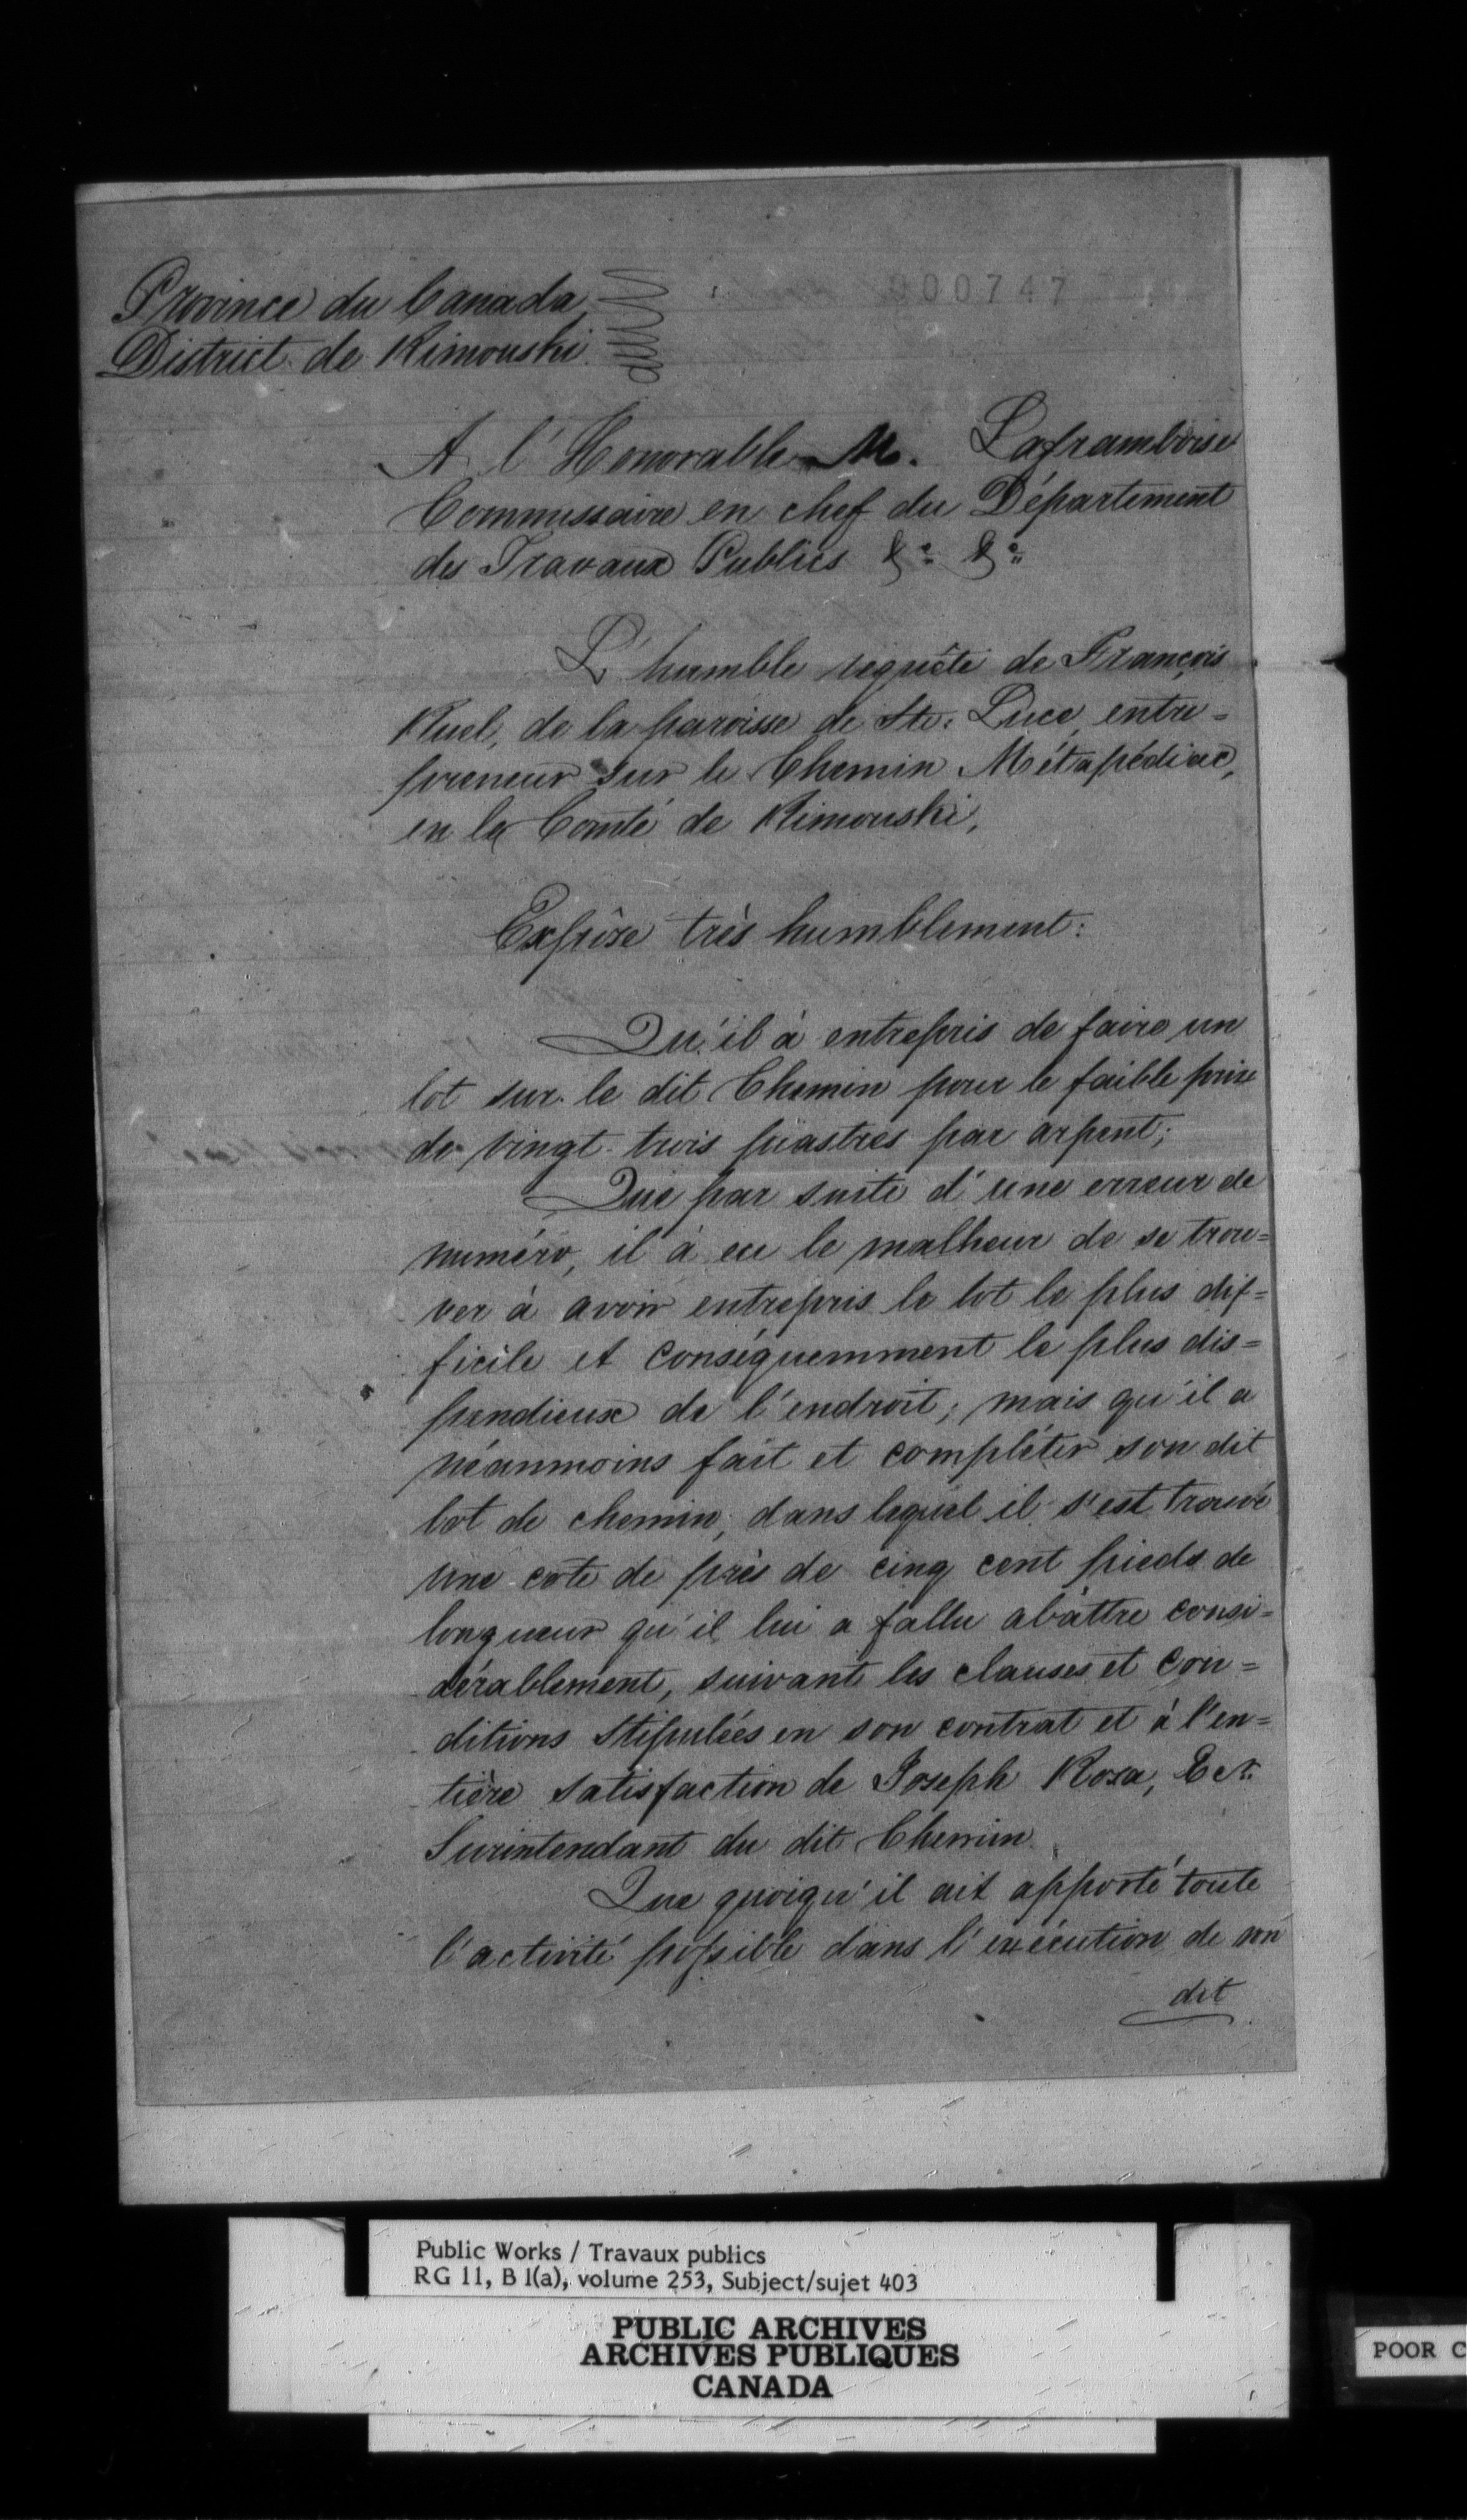 Province du Canada
District de Rimouski.
000747
A l'Honorable M. Laframboise
Commissaire en chef du Département
des Travaux Publics &c. &c.
L'humble requête de François
Ruel, de la paroisse de Ste. Luce, entre=
preneur sur le Chemin Métapédiac,
en le Comté de Rimouski,
Expôse très humblement:
Qu'il à entrepris de faire un
lot sur le dit Chemin pour le faible prix
de vingt-trois piastres par arpent;
Que par suite d'une erreur de
numéro, il à eu le malheur de se trou=
ver à avoir entrepris le lot le plus dif=
ficile et conséquemment le plus dis=
pendieux de l'endroit; mais qu'il a
néanmoins fait et compléter son dit
lot de chemin, dans lequel il s'est trouvé
une cote de près de cinq cent pieds de
longueur qu'il lui a fallu abâttre consi=
dérablement, suivant les clauses et con=
ditions stipulées en son contrat et à l'en=
tière satisfaction de Joseph Rosa, Ecr.
Surintendant du dit Chemin.
Que quoiqu'il ait apporté toute
l'activité possible dans l'exécution de son
dit
Public Works / Travaux publics
RG 11, B 1(a), volume 253, Subject/sujet 403
PUBLIC ARCHIVES
ARCHIVES PUBLIQUES
CANADA
POOR C